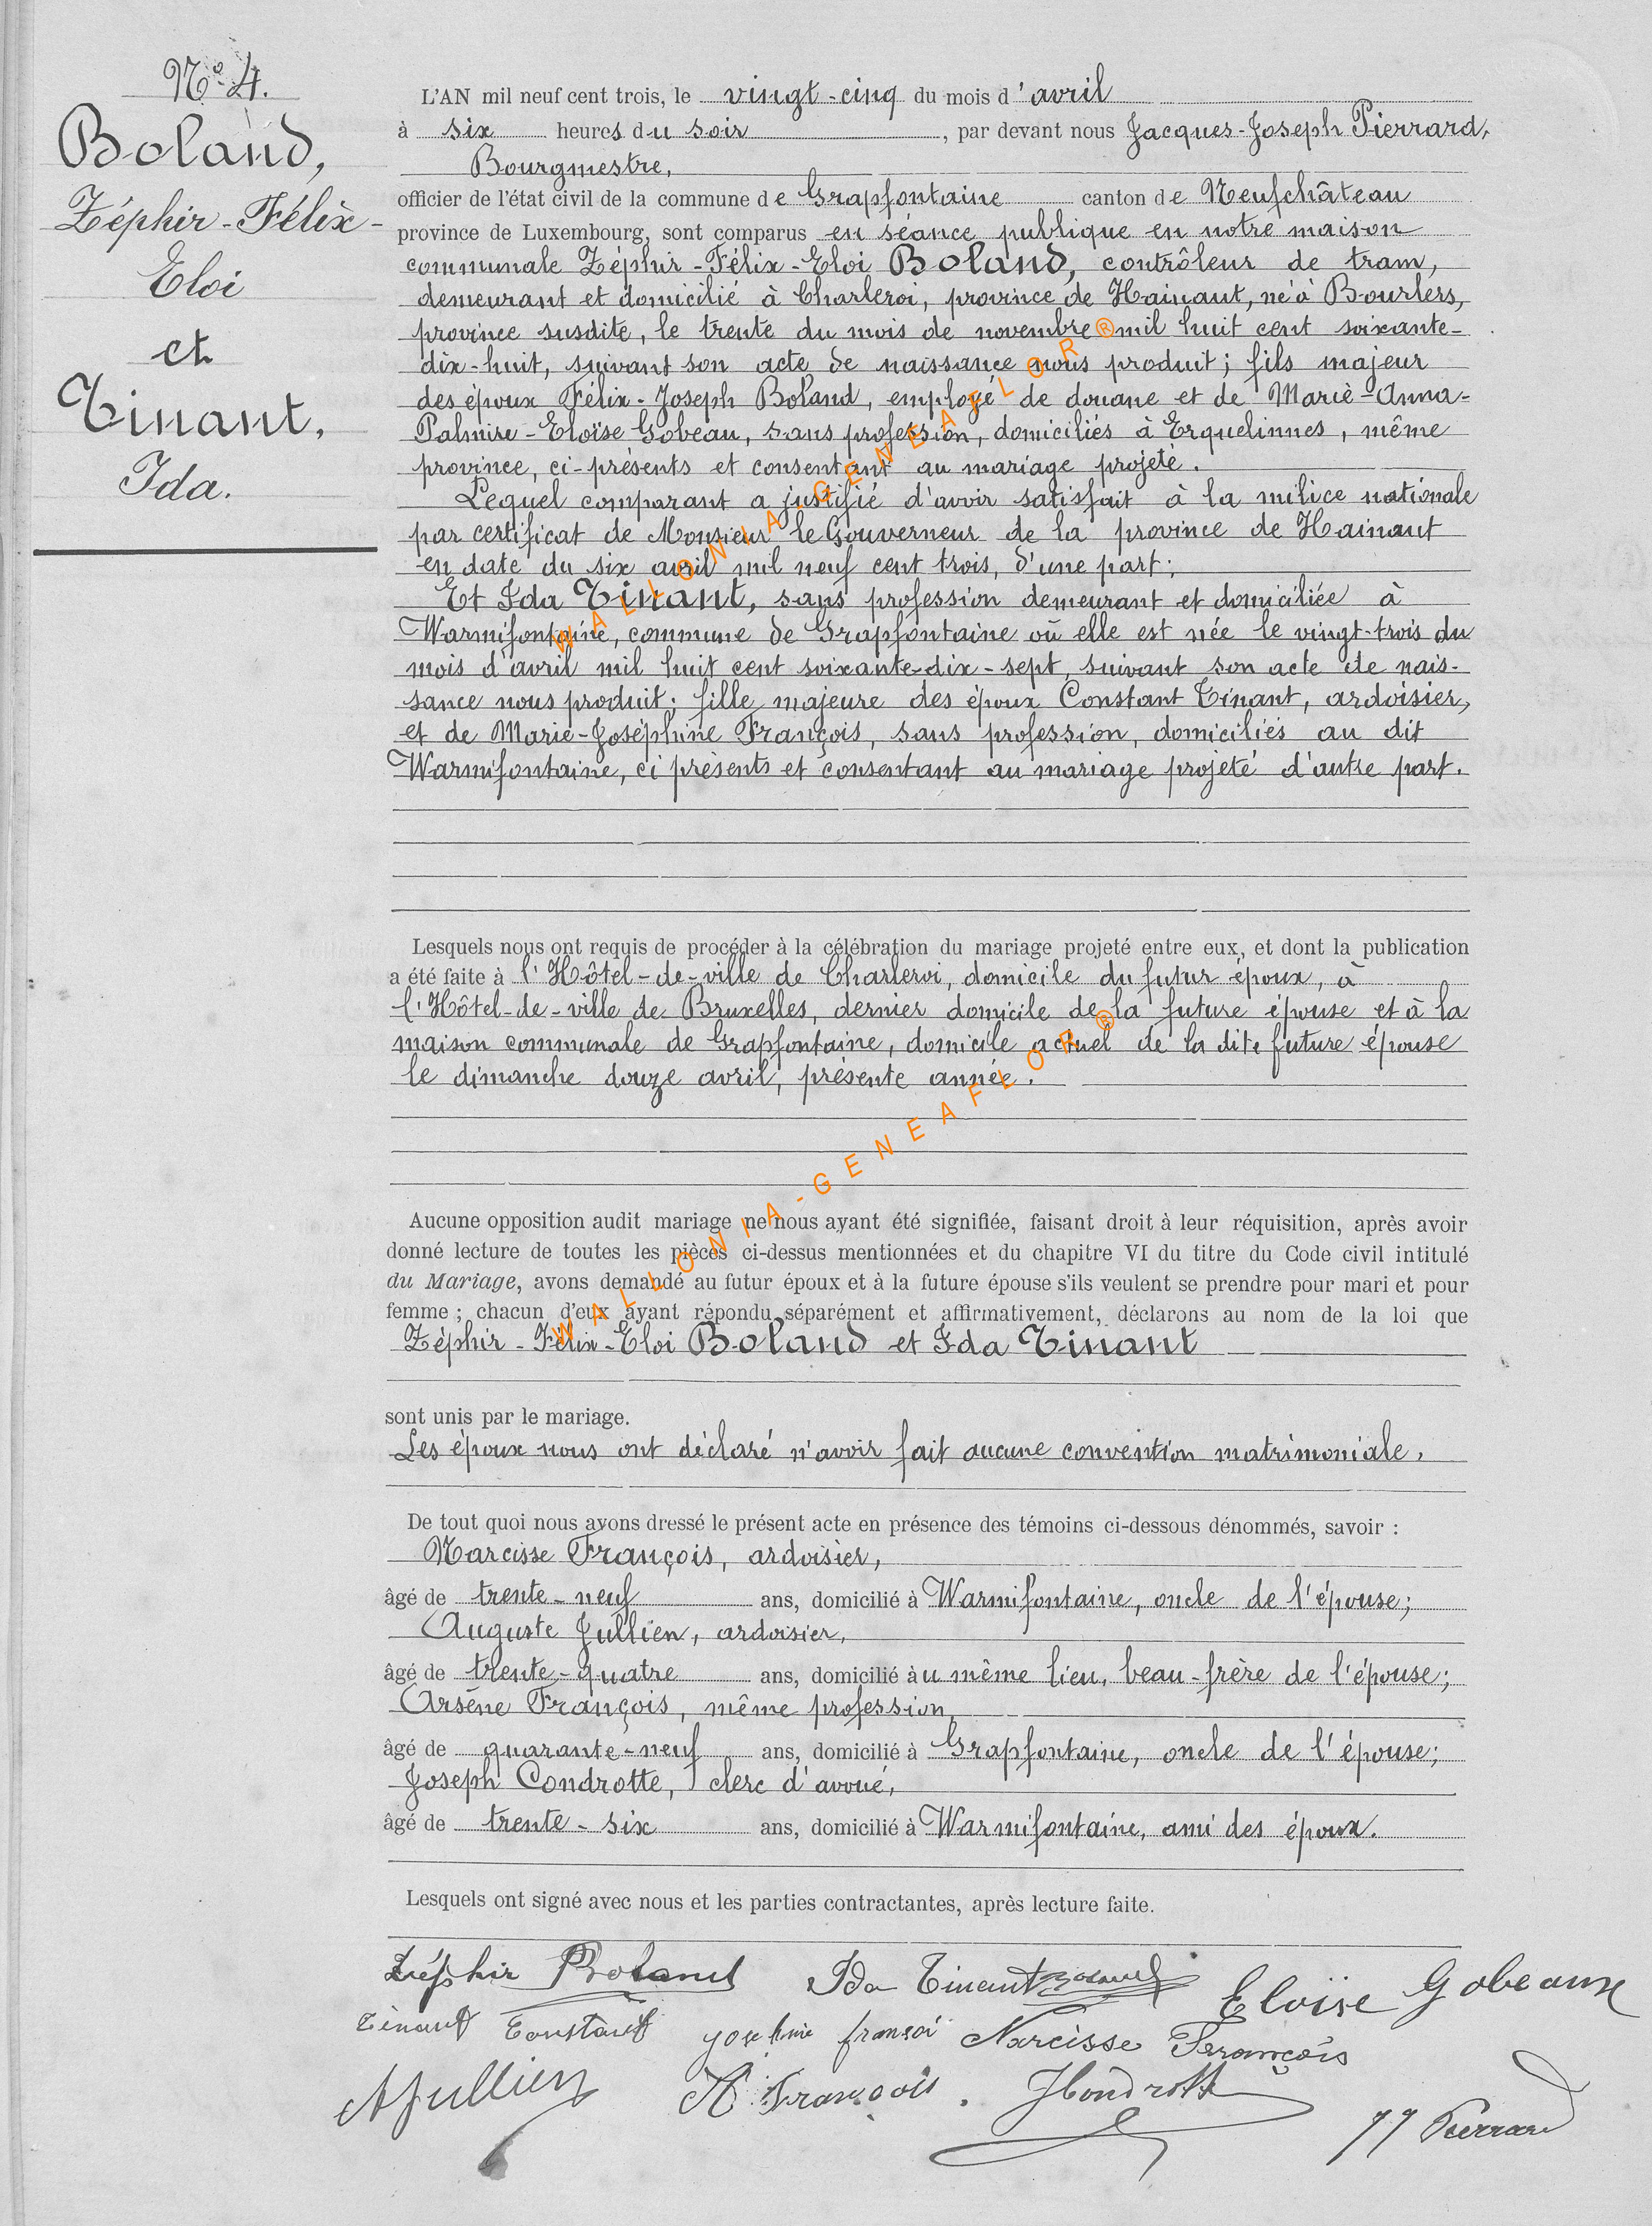 N° 4.
Boland,
Zéphir-Félix-
Eloi
et
Tinant,
Ida.
L'AN mil neuf cent trois, le vingt-cinq du mois d'avril
à six heures du soir, par devant nous Jacques-Joseph Pierrard,
Bourgmestre,
officier de l'état civil de la commune de Grapfontaine canton de Neufchâteau
province de Luxembourg, sont comparus en séance publique en notre maison
communale Zéphir-Félix-Eloi Boland, contrôleur de tram,
demeurant et domicilié à Charleroi, province de Hainaut, né à Bourlers,
province susdite, le trente du mois de novembre mil huit cent soixante-
dix-huit, suivant son acte de naissance nous produit; fils majeur
des époux Félix-Joseph Boland, employé de douane et de Marie-Anna-
Palmire-Eloïse Gobeau, sans profession, domiciliés à Erquelinnes, même
province, ci-présents et consentant au mariage projeté.
Lequel comparant a justifié d'avoir satisfait à la milice nationale
par certificat de Monsieur le Gouverneur de la province de Hainaut
en date du six avril mil neuf cent trois, d'une part;
Et Ida Tinant, sans profession demeurant et domiciliée à
Warmifontaine, commune de Grapfontaine où elle est née le vingt-trois du
mois d'avril mil huit cent soixante-dix-sept, suivant son acte de nais-
sance nous produit; fille majeure des époux Constant Tinant, ardoisier,
et de Marie-Joséphine François, sans profession, domiciliés au dit
Warmifontaine, ci présents et consentant au mariage projeté d'autre part.
WALLONIA-GENEAFLOR®
Lesquels nous ont requis de procéder à la célébration du mariage projeté entre eux, et dont la publication
a été faite à l'Hôtel-de-ville de Charleroi, domicile du futur époux, à
l'Hôtel-de-ville de Bruxelles, dernier domicile de la future épouse et à la
maison communale de Grapfontaine, domicile actuel de la dite future épouse
le dimanche douze avril, présente année.
WALLONIA-GENEAFLOR®
Aucune opposition audit mariage ne nous ayant été signifiée, faisant droit à leur réquisition, après avoir
donné lecture de toutes les pièces ci-dessus mentionnées et du chapitre VI du titre du Code civil intitulé
du Mariage, avons demandé au futur époux et à la future épouse s'ils veulent se prendre pour mari et pour
femme ; chacun d'eux ayant répondu séparément et affirmativement, déclarons au nom de la loi que
Zéphir-Félix-Eloi Boland et Ida Tinant
sont unis par le mariage.
Les époux nous ont déclaré n'avoir fait aucune convention matrimoniale.
De tout quoi nous avons dressé le présent acte en présence des témoins ci-dessous dénommés, savoir :
Narcisse François, ardoisier,
âgé de trente-neuf ans, domicilié à Warmifontaine, oncle de l'épouse;
Auguste Jullien, ardoisier,
âgé de trente-quatre ans, domicilié au même lieu, beau-frère de l'épouse;
Arsène François, même profession,
âgé de quarante-neuf ans, domicilié à Grapfontaine, oncle de l'épouse;
Joseph Condrotte, clerc d'avoué,
âgé de trente-six ans, domicilié à Warmifontaine, ami des époux.
Lesquels ont signé avec nous et les parties contractantes, après lecture faite.
Zéphir Boland Ida Tinant Eloïse Gobeaux
Tinant Constant françoi Narcisse François
A Jullien A François. JCondrotte
JJ Pierrard